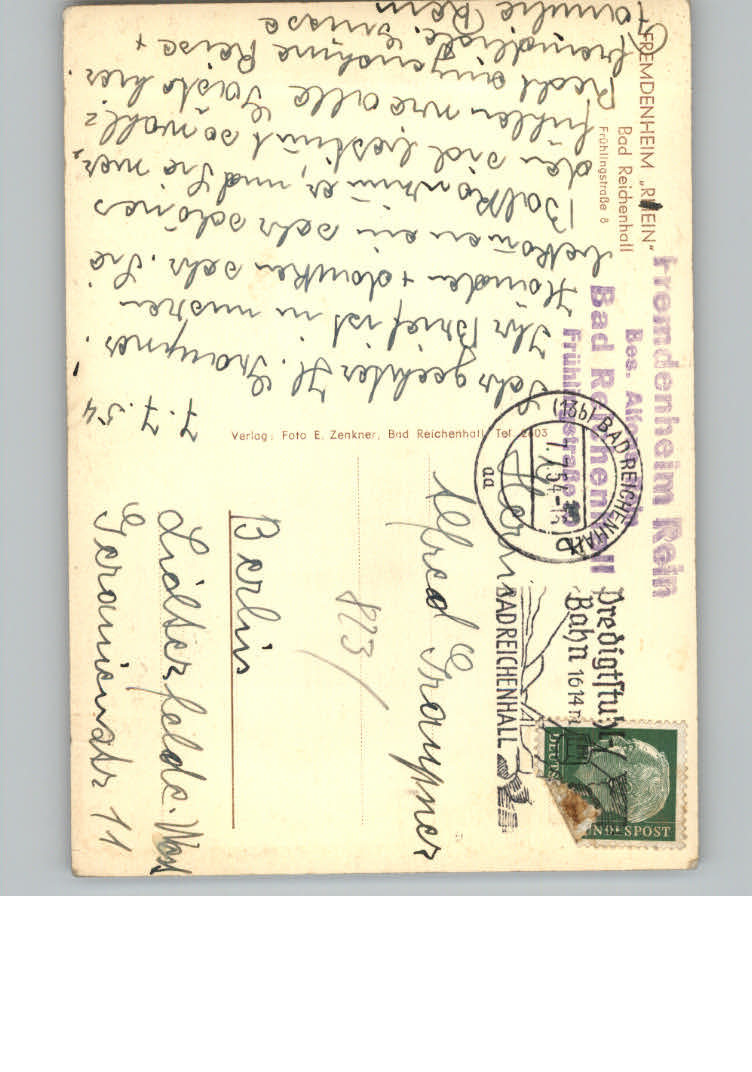 FREMDENHEIM „RHEIN“
Bad Reichenhall
Frühlingstraße 8
Fremdenheim Rein
Bes. Alfons Rein
Bad Reichenhall
Frühlingstraße 8
7.7.54
Sehr geehrter H. Graupner.
Ihr Brief ist in unsren
Händen + danken sehr. Sie
bekom̄en ein sehr schönes
Balkonzim̄er, und Sie wer-
den sich bestim̄t so wohl
fühlen wie alle Gäste hier.
Recht angenehme Reise +
freundliche Grüsse
Familie Rein
Verlag: Foto E. Zenkner, Bad Reichenhall, Tel. 2603
(13b) BAD REICHENHALL
7.7.54
aa
Predigtstuhl
Bahn 1614 m
BAD REICHENHALL
DEUTS
NDESPOST
Herrn
Alfred Graupner
823/
Berlin
Lichterfelde-West
Geranienstr 11